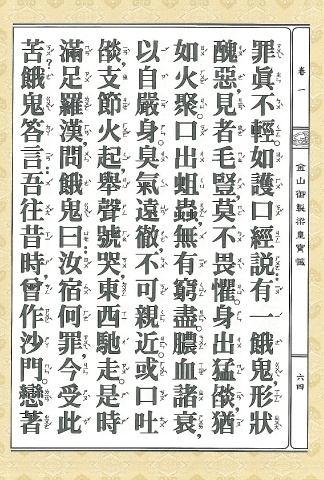 卷一
金山御製梁皇寶懺
六四
罪眞不輕。如護口經說:有一餓鬼,形狀
醜惡,見者毛豎,莫不畏懼。身出猛燄,猶
如火聚。口出蛆蟲,無有窮盡。膿血諸衰,
以自嚴身。臭氣遠徹,不可親近。或口吐
燄,支節火起,舉聲號哭,東西馳走。是時
滿足羅漢,問餓鬼曰:汝宿何罪,今受此
苦?餓鬼答言:吾往昔時,曾作沙門。戀著